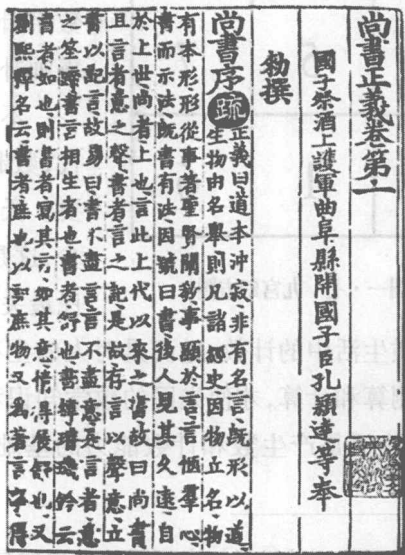 尚書正義卷第一
國子祭酒上護軍曲阜縣開國子臣孔穎達等奉
勑撰
尚書序
疏
正義曰道本沖寂非有名言既形以道
生物由名舉則凡諸經史因物立名物
有本形形從事著聖賢闡教事顯於言言愜羣心
書而示法既書有法因號曰書後人見其久遠自
於上世尚者上也言此上代以來之書故曰尚書
且言者意之聲書者言之記是故存言以聲意立
書以記言故易曰書不盡言言不盡意是言者意
之筌蹄書言相生者也書者舒也書緯璿璣鈐云
書者如也則書者寫其言如其意情得展舒也又
劉熙釋名云書者庶也以記庶物又為著言得